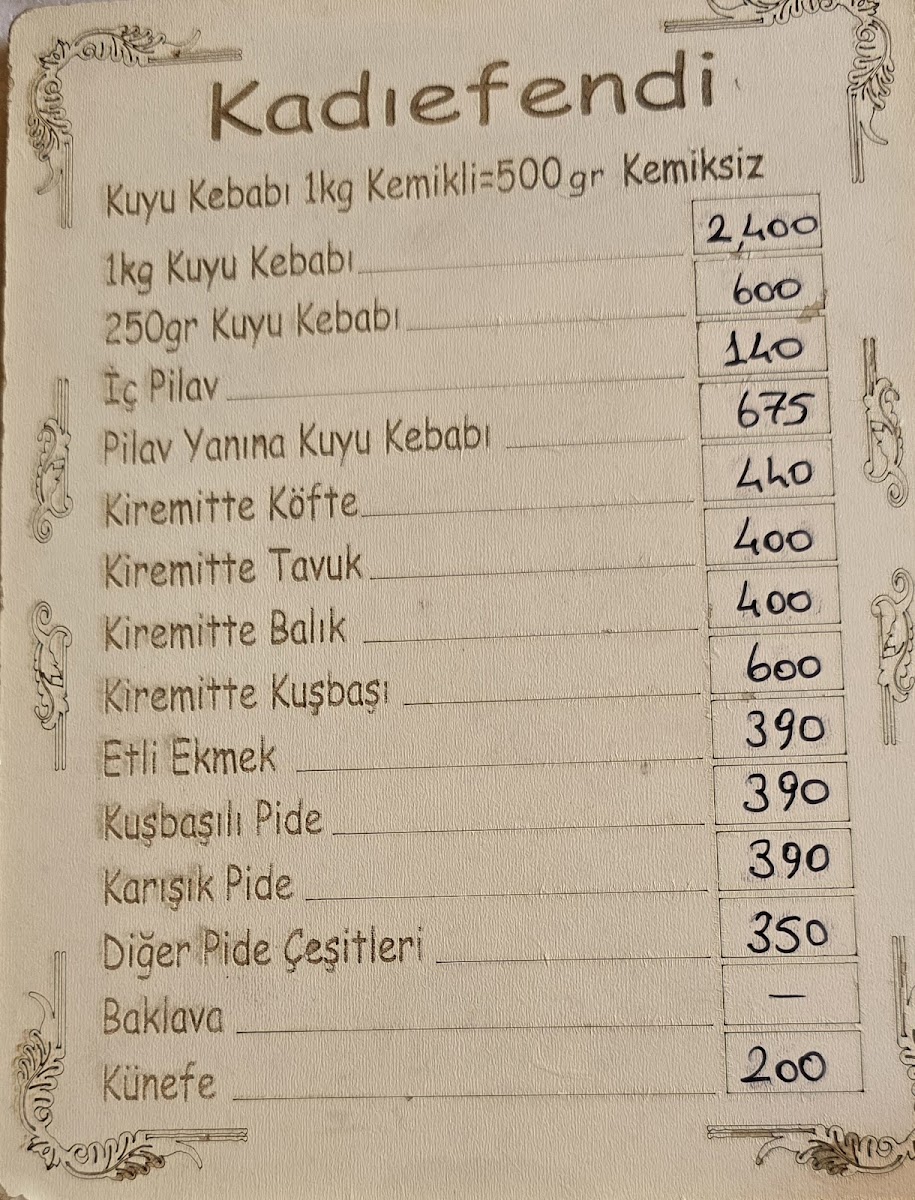 Kadıefendi
Kuyu Kebabı 1kg Kemikli=500gr Kemiksiz
1kg Kuyu Kebabı 2,400
250gr Kuyu Kebabı 600
İç Pilav 140
Pilav Yanına Kuyu Kebabı 675
Kiremitte Köfte 440
Kiremitte Tavuk 400
Kiremitte Balık 400
Kiremitte Kuşbaşı 600
Etli Ekmek 390
Kuşbaşılı Pide 390
Karışık Pide 390
Diğer Pide Çeşitleri 350
Baklava —
Künefe 200